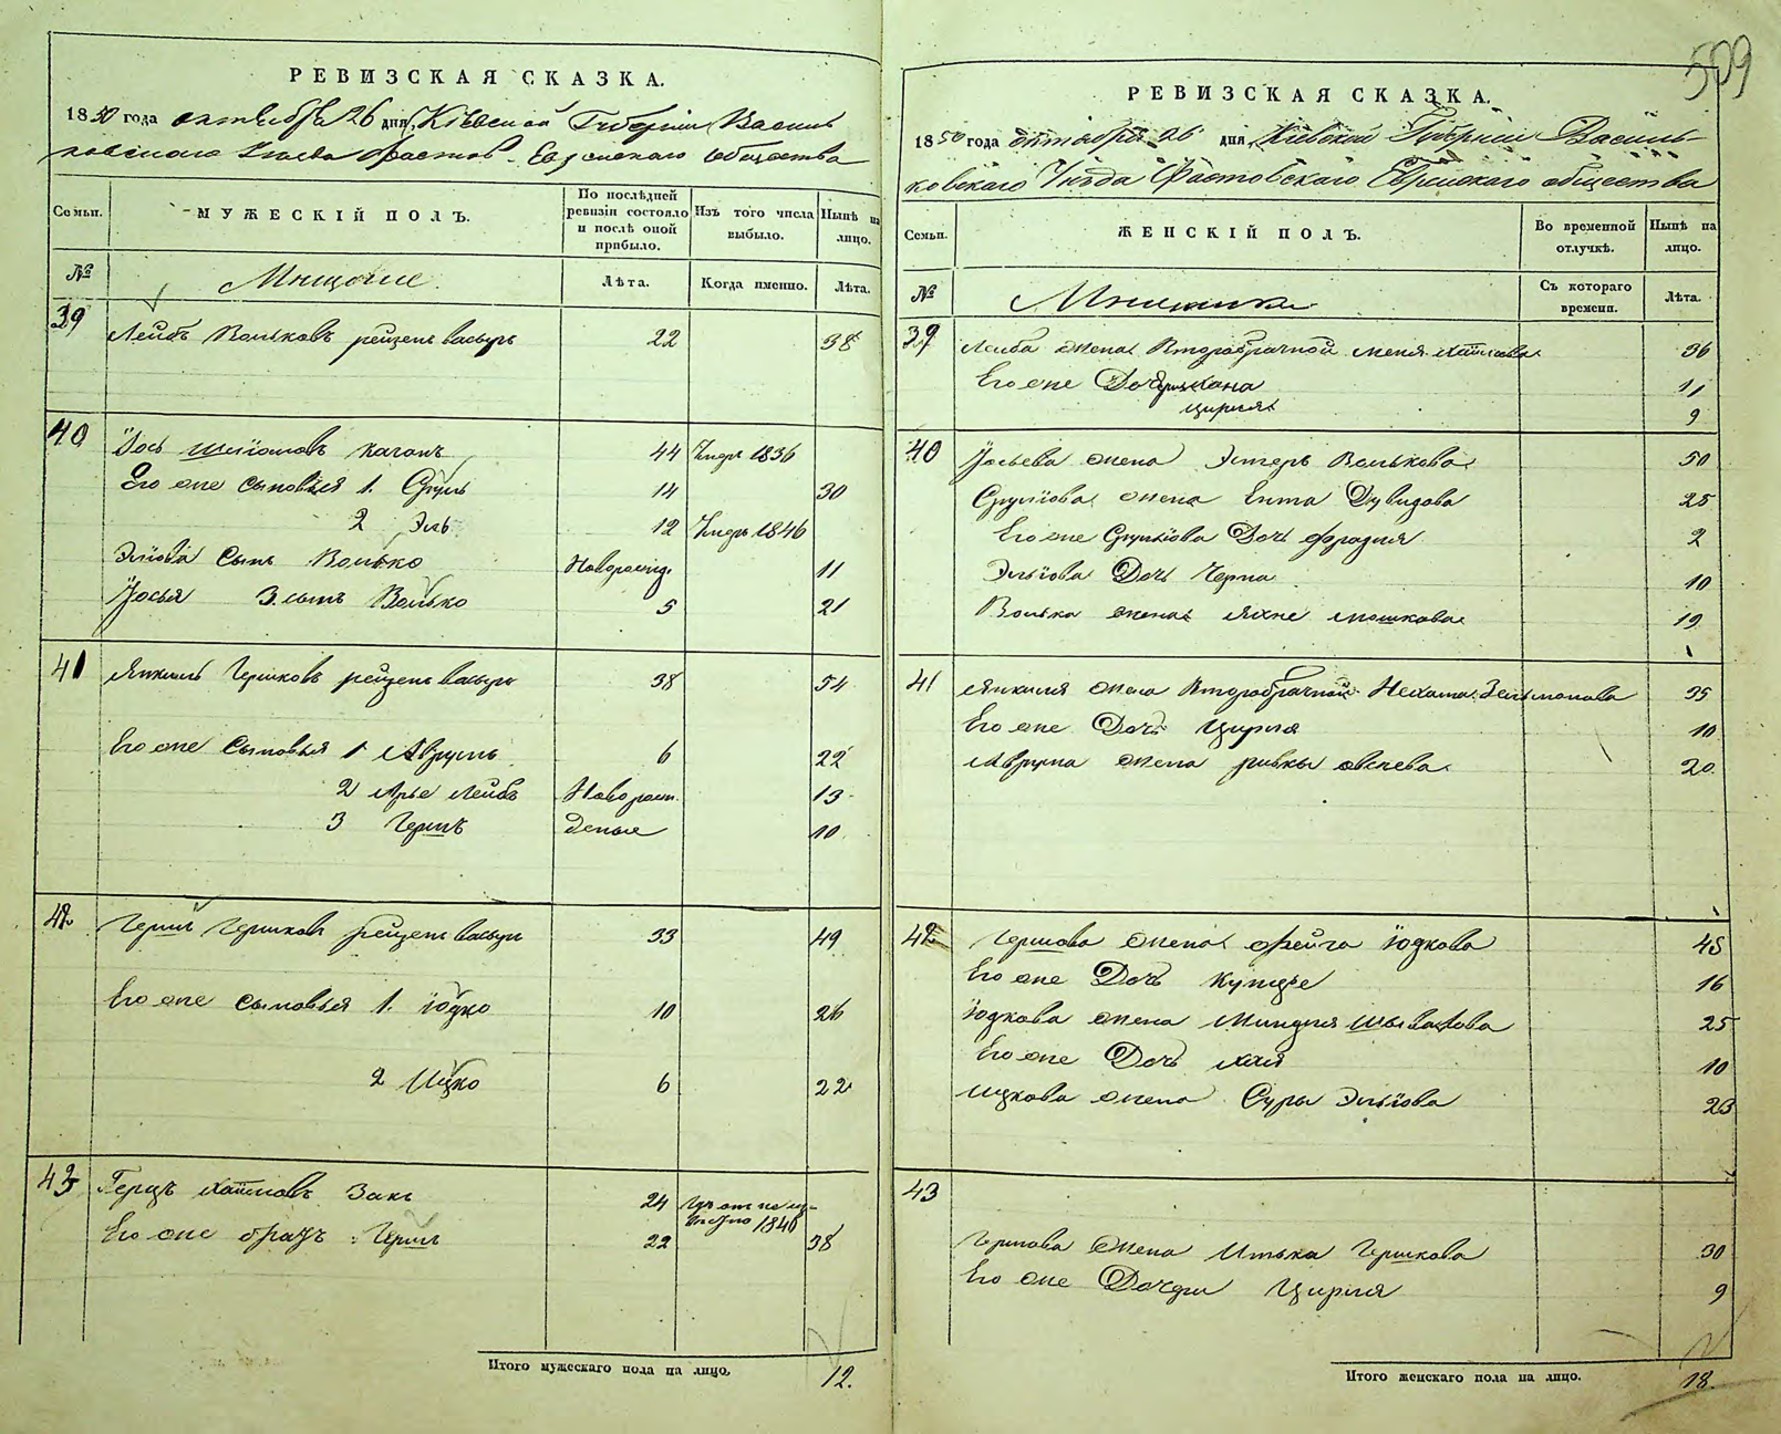 509
РЕВИЗСКАЯ СКАЗКА.
1850 года октября 26 дня, Кіевской Губерніи Василь
ковскаго Уезда Фастов. Еврейскаго общества
Семьи.
МУЖЕСКІЙ ПОЛЪ.
По послѣдней ревизіи состояло и послѣ оной прибыло.
Изъ того числа выбыло.
Нынѣ на лицо.
№
Мещане.
Лѣта.
Когда именно.
Лѣта.
39 Лейбъ Вольковъ 22 38
40 Іось Каганъ 44 Умеръ 1836
Его же сыновья 1. Сруль 14 30
2 Эль 12 Умеръ 1846
Эліова Сынъ Волько Новорожд. 11
Іосья 3. сынъ Волько 5 21
41 Янкель Гершковъ 38 54
Его же Сыновья 1 Аврумъ 6 22
2 Арье Лейбъ Новорож. 13
3 Гершъ деные 10
42 Гершъ Гершковъ 33 49
Его же Сыновья 1. Юдко 10 26
2 Ицко 6 22
43 Герцъ Хаимовъ Закс 24 1840
Его же братъ Гершъ 22 38
Итого мужескаго пола на лицо. 12.
РЕВИЗСКАЯ СКАЗКА.
1850 года октября 26 дня, Кіевской Губерніи Василь-
ковскаго Уезда Фастовскаго Еврейскаго общества
Семьи.
ЖЕНСКІЙ ПОЛЪ.
Во временной отлучкѣ.
Нынѣ на лицо.
№
Мещанки
Съ котораго времени.
Лѣта.
39 Лейба жена Второбрачной Хаимова 36
Его же Дочери Хана 11
Цирля 9
40 Іосьева жена Эстеръ Волькова 50
Сруліова жена Ента Дувидова 25
Его же Сруліова Дочь Фрадля 2
Эльіова Дочь Черна 10
Волька жена Яхне Мошкова 19
41 Янкеля жена Второбрачной Нехама Зельманова 35
Его же Дочь Цирля 10
Аврума жена Ривка Овсеева 20
42 Гершова жена Фейга Юдкова 45
Его же Дочь 16
Юдкова жена Миндля 25
Его же Дочь Хая 10
Ицкова жена Сура Эльіова 23
43
Гершова жена Итька Гершкова 30
Его же Дочери Цирля 9
Итого женскаго пола на лицо. 18.